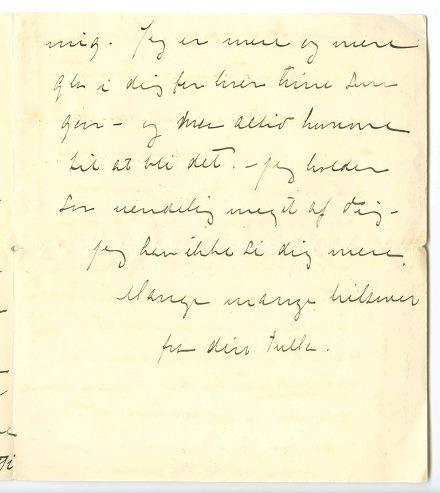 mig. Jeg er mere og mere
gla i dig for hver time som
går – og altid komme
til at bli det. – Jeg holder
så uendelig meget af dig –
jeg kan ikke si dig mere.
Mange mange hilsener
fra din Tulla.